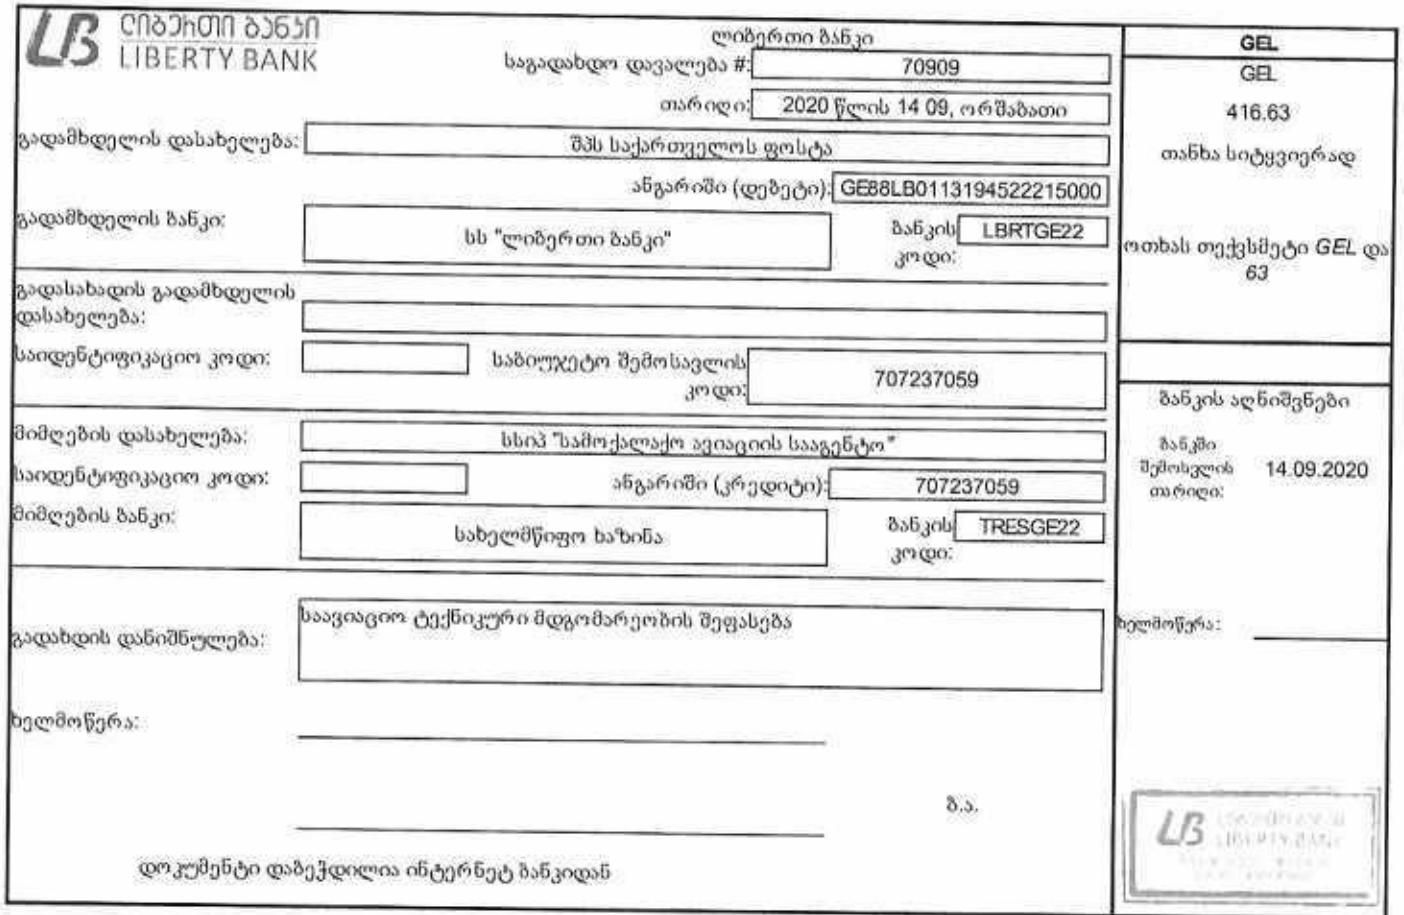 ლიბერთი ბანკი
LIBERTY BANK
ლიბერთი ბანკი
საგადახდო დავალება #: 70909
თარიღი: 2020 წლის 14 09, ორშაბათი
გადამხდელის დასახელება: შპს საქართველოს ფოსტა
ანგარიში (დებეტი): GE88LB0113194522215000
გადამხდელის ბანკი: სს "ლიბერთი ბანკი" ბანკის LBRTGE22
კოდი:
გადასახადის გადამხდელის
დასახელება:
საიდენტიფიკაციო კოდი: საბიუჯეტო შემოსავლის 707237059
კოდი:
მიმღების დასახელება: სსიპ "სამოქალაქო ავიაციის სააგენტო"
საიდენტიფიკაციო კოდი: ანგარიში (კრედიტი): 707237059
მიმღების ბანკი: სახელმწიფო ხაზინა ბანკის TRESGE22
კოდი:
გადახდის დანიშნულება: საავიაციო ტექნიკური მდგომარეობის შეფასება
ხელმოწერა:
ბ.ა.
დოკუმენტი დაბეჭდილია ინტერნეტ ბანკიდან
GEL
GEL
416.63
თანხა სიტყვიერად
ოთხას თექვსმეტი GEL და
63
ბანკის აღნიშვნები
ბანკში
შემოსვლის 14.09.2020
თარიღი:
ხელმოწერა:
LIBERTY BANK